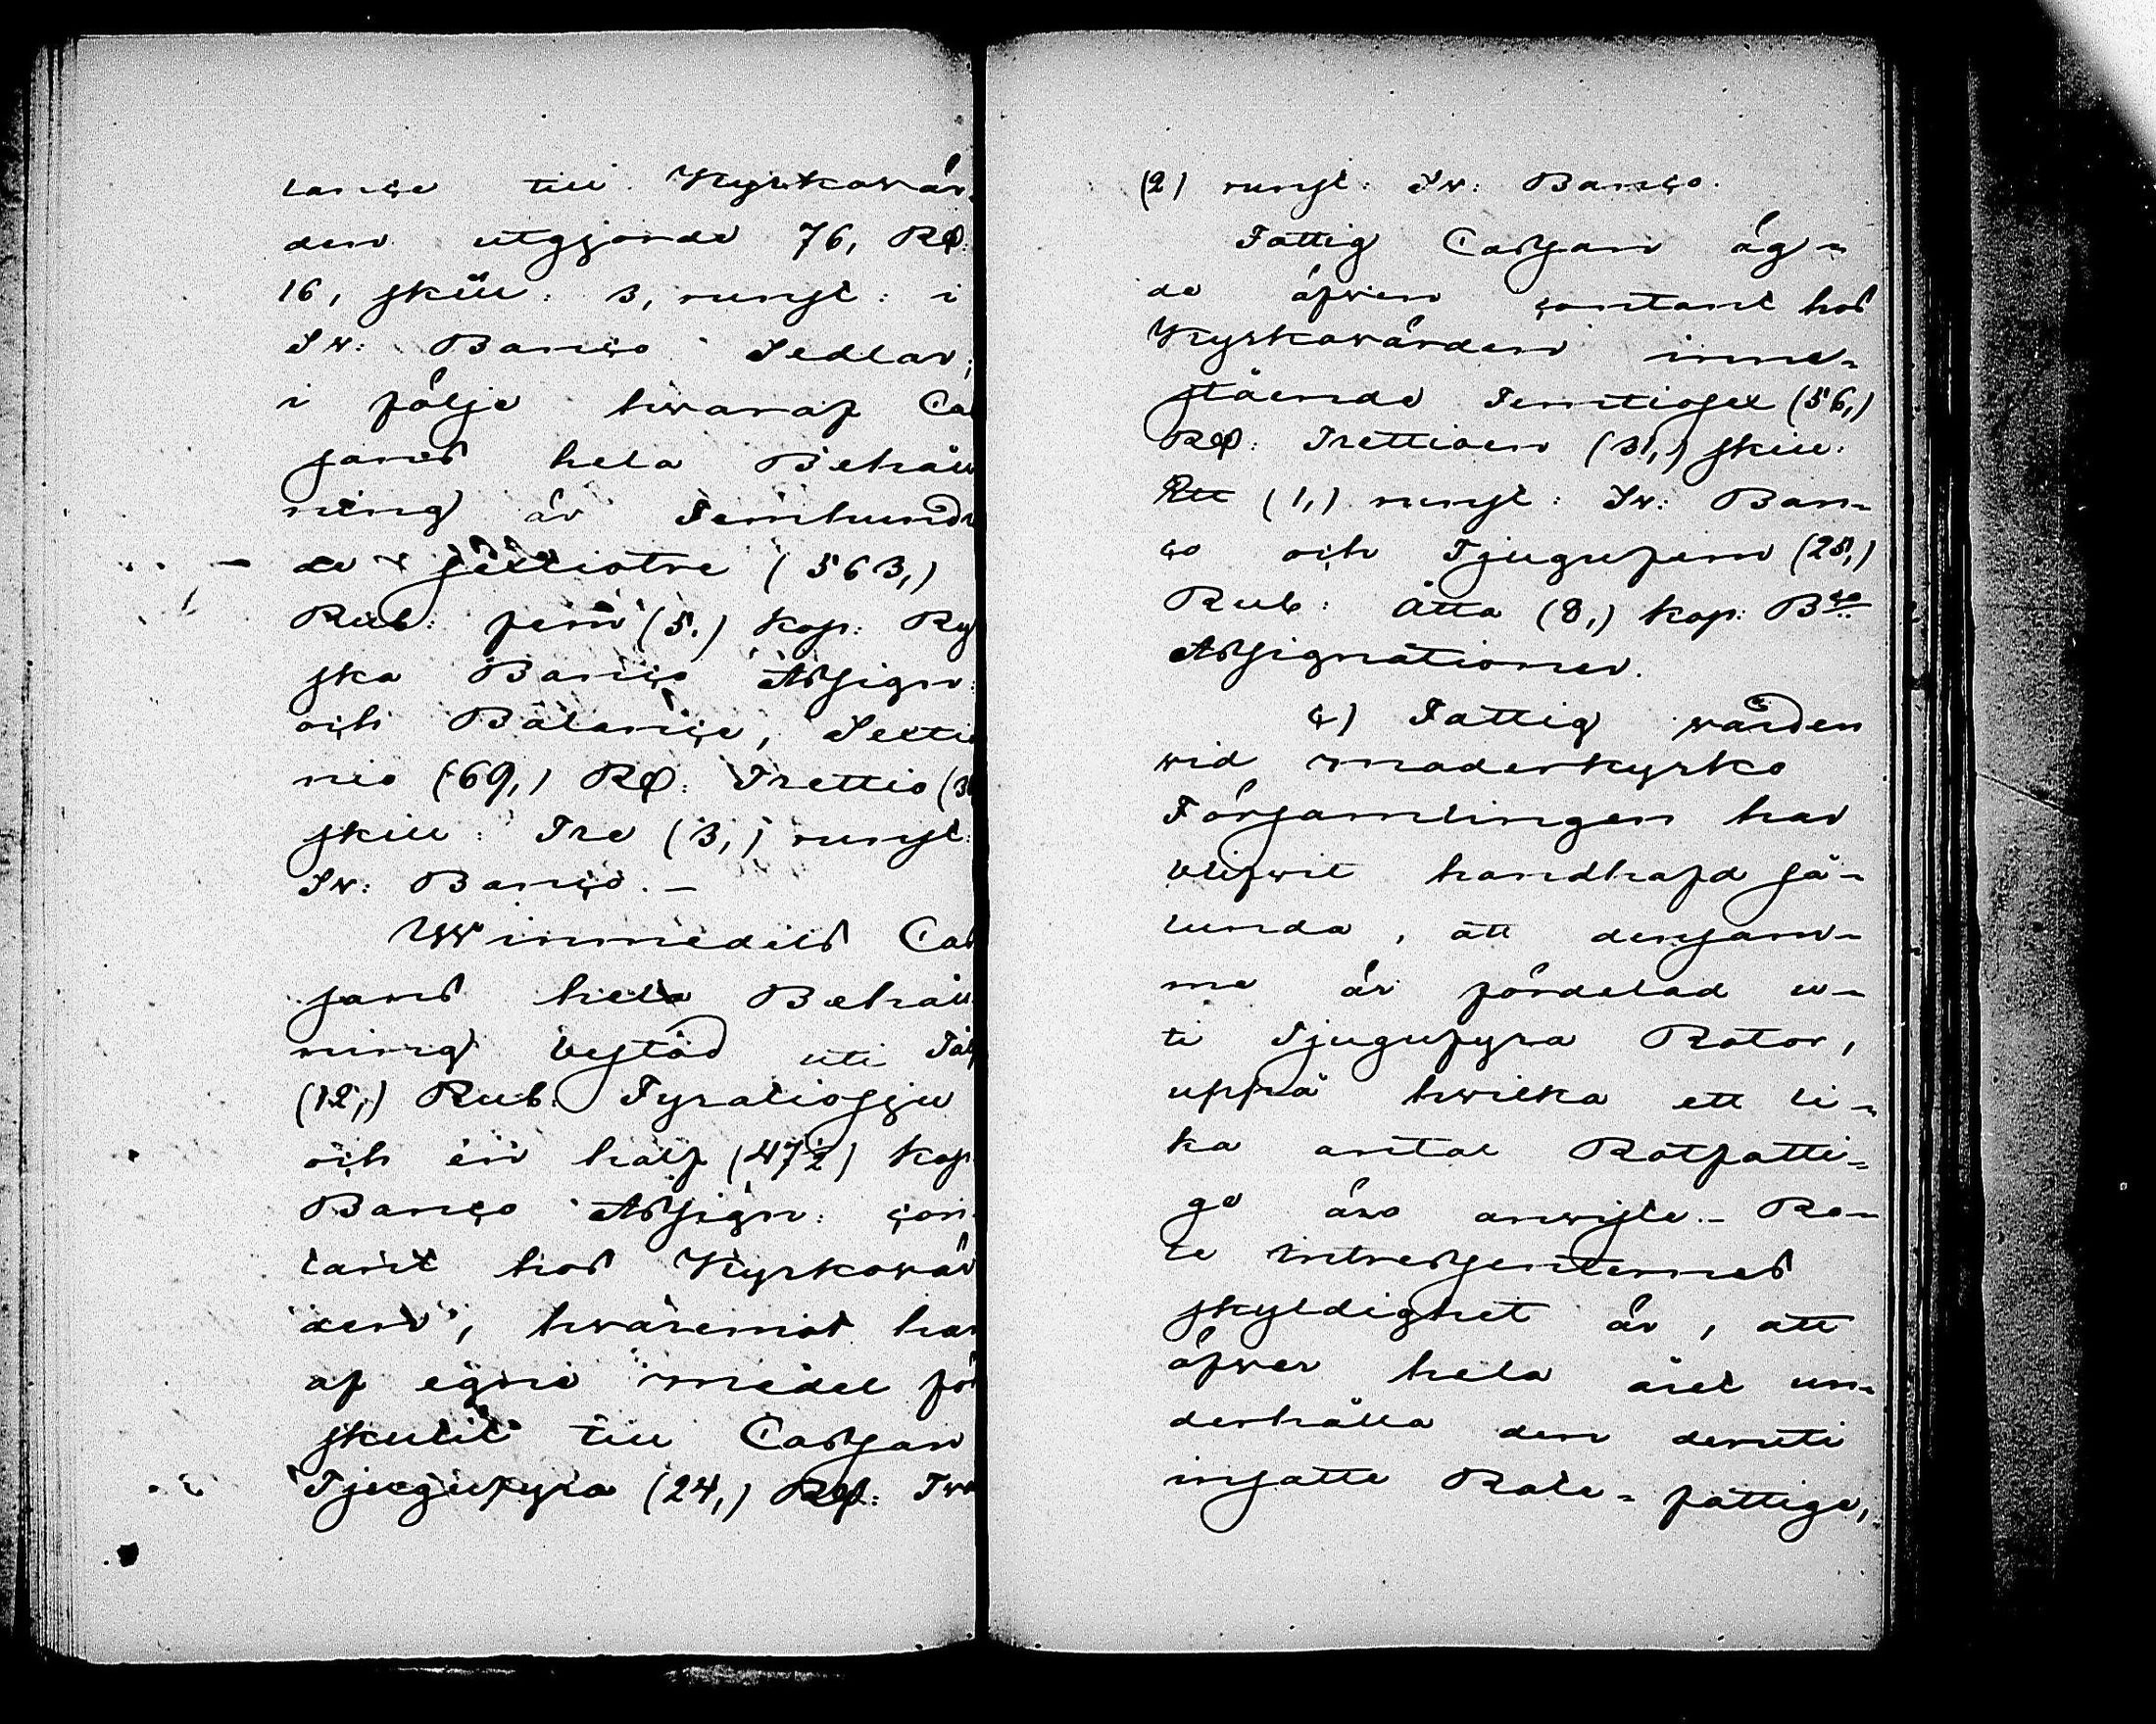 lance till Kyrkovär-
den utgjorde 76, RØ:
16, skill: 3, runst: i
Sv: Banco Sedlar;
i följe hwaraf Ca
sans hela Behåll
ning är Femhund
de sextiotre (563,)
Rub: fem (5.) kop: Ry
ska Banco Assign:
och Balance, Sextio
nio (69,) RØ: Trettio (3
skill: Tre (3,) runst:
Sv: Banco. —
Winmedels Cas
sans hela Behåll
ning bestod uti Tolf
(12,) Rub. Fyratiosju
och en half (47½) kop
Banco Assign: con-
tant hos Kyrkovär
den, hwaremot han
af egne medel för
skutit till Cassan
Tjugufyra (24,) RØ: Two
(2) runst: Sv: Banco.
Fattig Cassan äg-
de äfven contant hos
Kyrkovärden inne-
stående Femtiosex (56,)
RØ: Trettioen (31,) skill:
Ett (1,) runst: Sv: Ban-
co och Tjugufem (25,)
Rub: Åtta (8,) kop: Bco
Assignationer.
c) Fattig vården
vid moderkyrko
Församlingen har
blifvit handhafd så-
lunda, att densam-
ma är fördelad u-
ti Tjugufyra Rotar,
uppå hwilka ett li-
ka antal Rotfatti-
ge äro anviste. — Ro-
te Intressenternes
skyldighet är, att
öfver hela året un-
derhålla den deruti
insatte Rote-fattige,